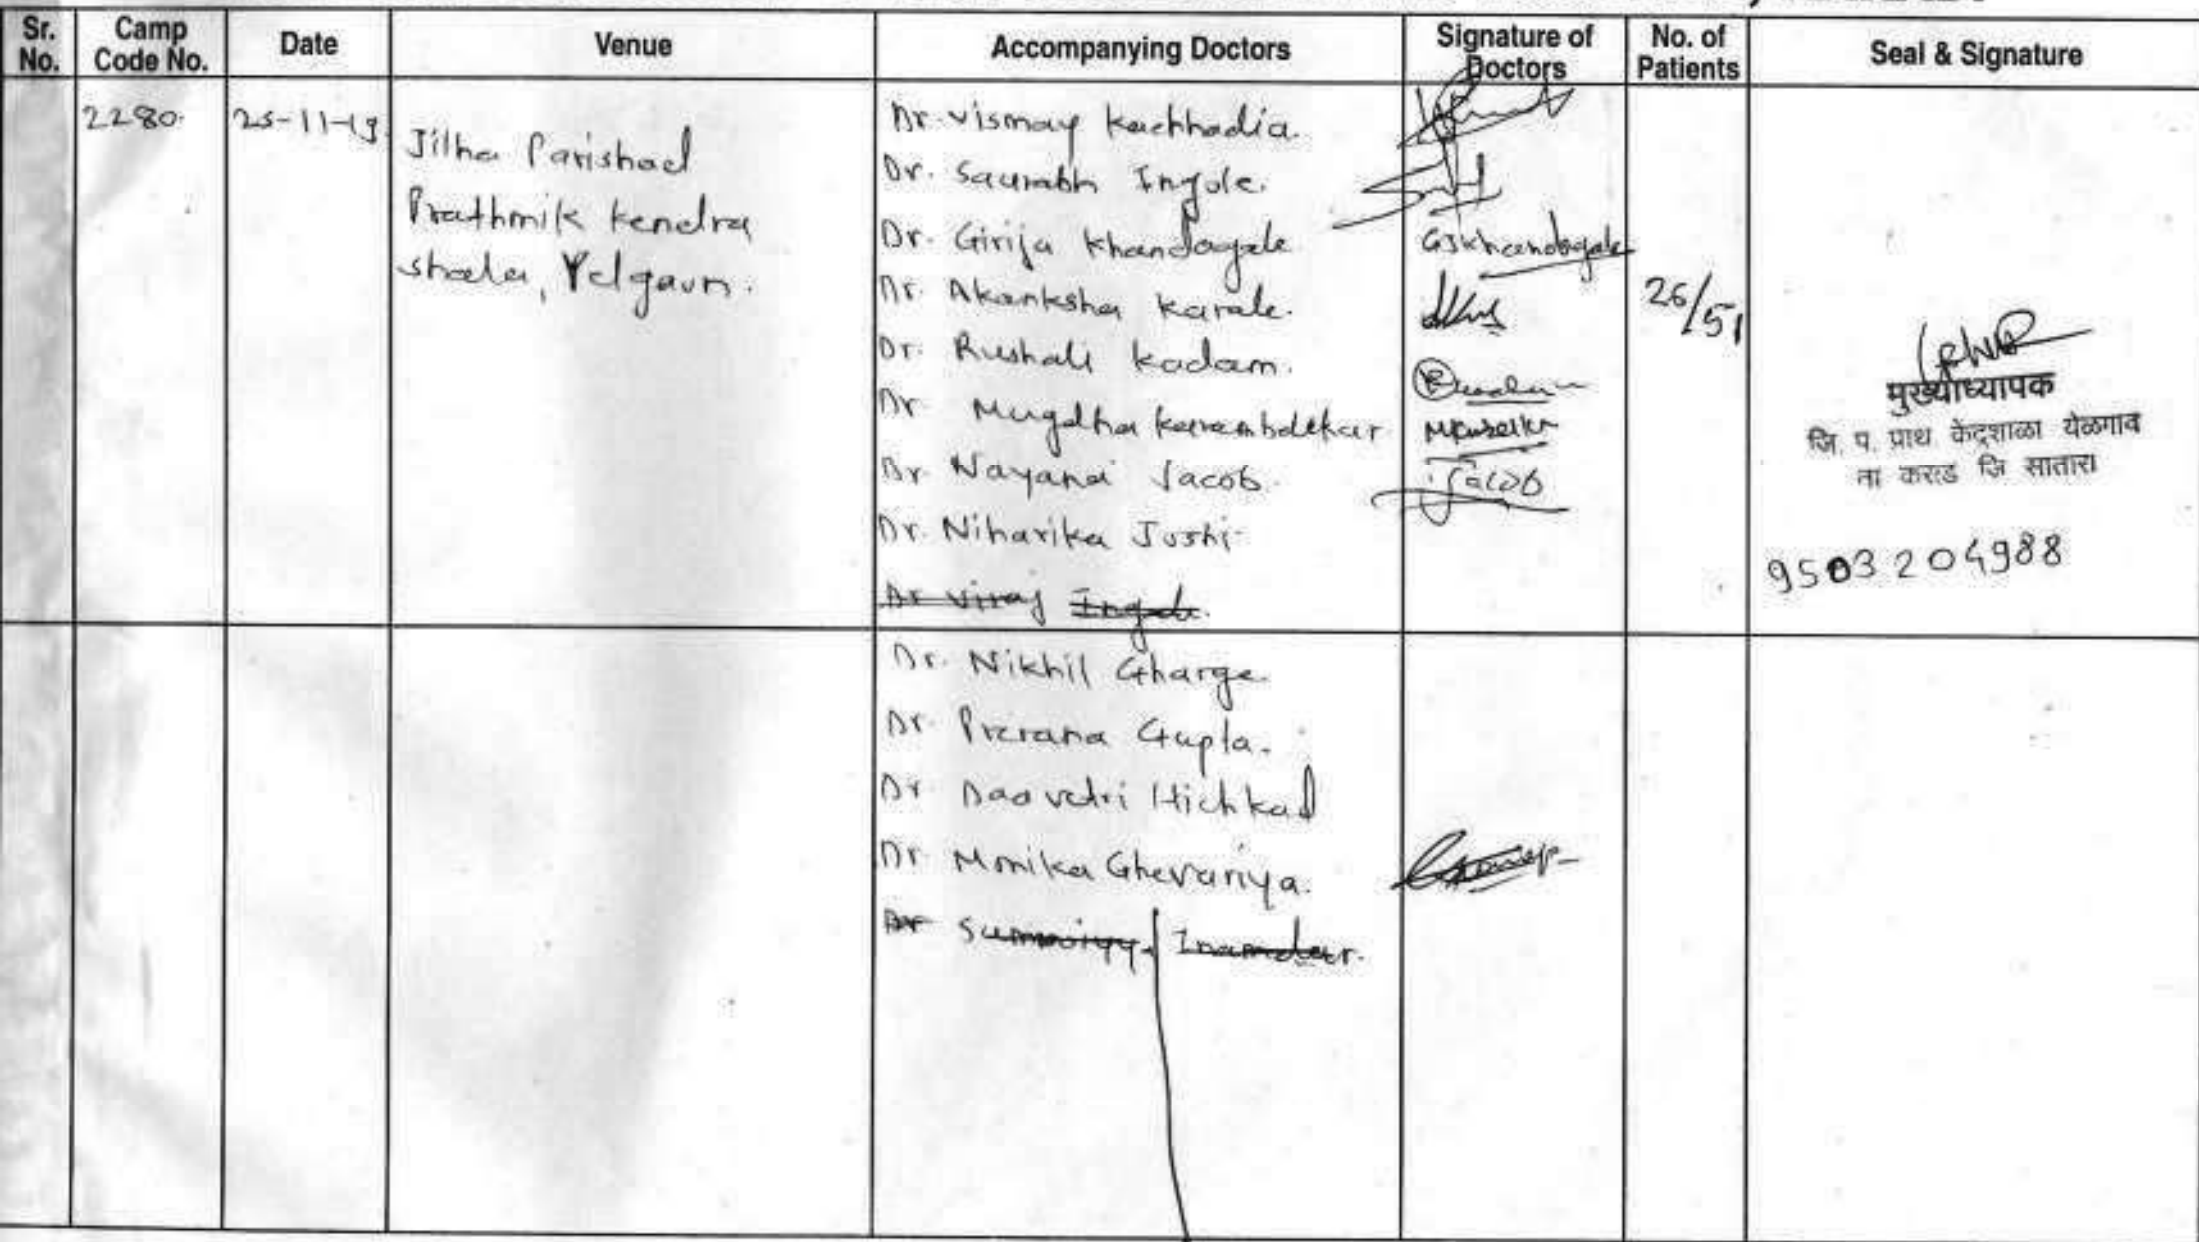 Sr. No.
Camp Code No.
Date
Venue
Accompanying Doctors
Signature of Doctors
No. of Patients
Seal & Signature
2280.
25-11-19
Jilha Parishad
Prathmik Kendra
shala, Yelgaun.
Dr. Vismay Kachhadia.
Dr. Saurabh Ingole.
Dr. Girija Khandagale
Dr. Akanksha Karale.
Dr. Rushali Kadam.
Dr Mugdha Karambelkar
Dr Nayana Jacob.
Dr. Niharika Joshi
Dr Viraj Ingale.
GSKhandagale
Jacob
26/51
मुख्याध्यापक
जि. प. प्राथ. केंद्रशाळा येळगाव
ता कराड जि सातारा
9503204988
Dr. Nikhil Gharge
Dr. Prerana Gupta.
Dr Hichkad
Dr Monika Ghevariya.
Dr Summaiyya Inamdar.